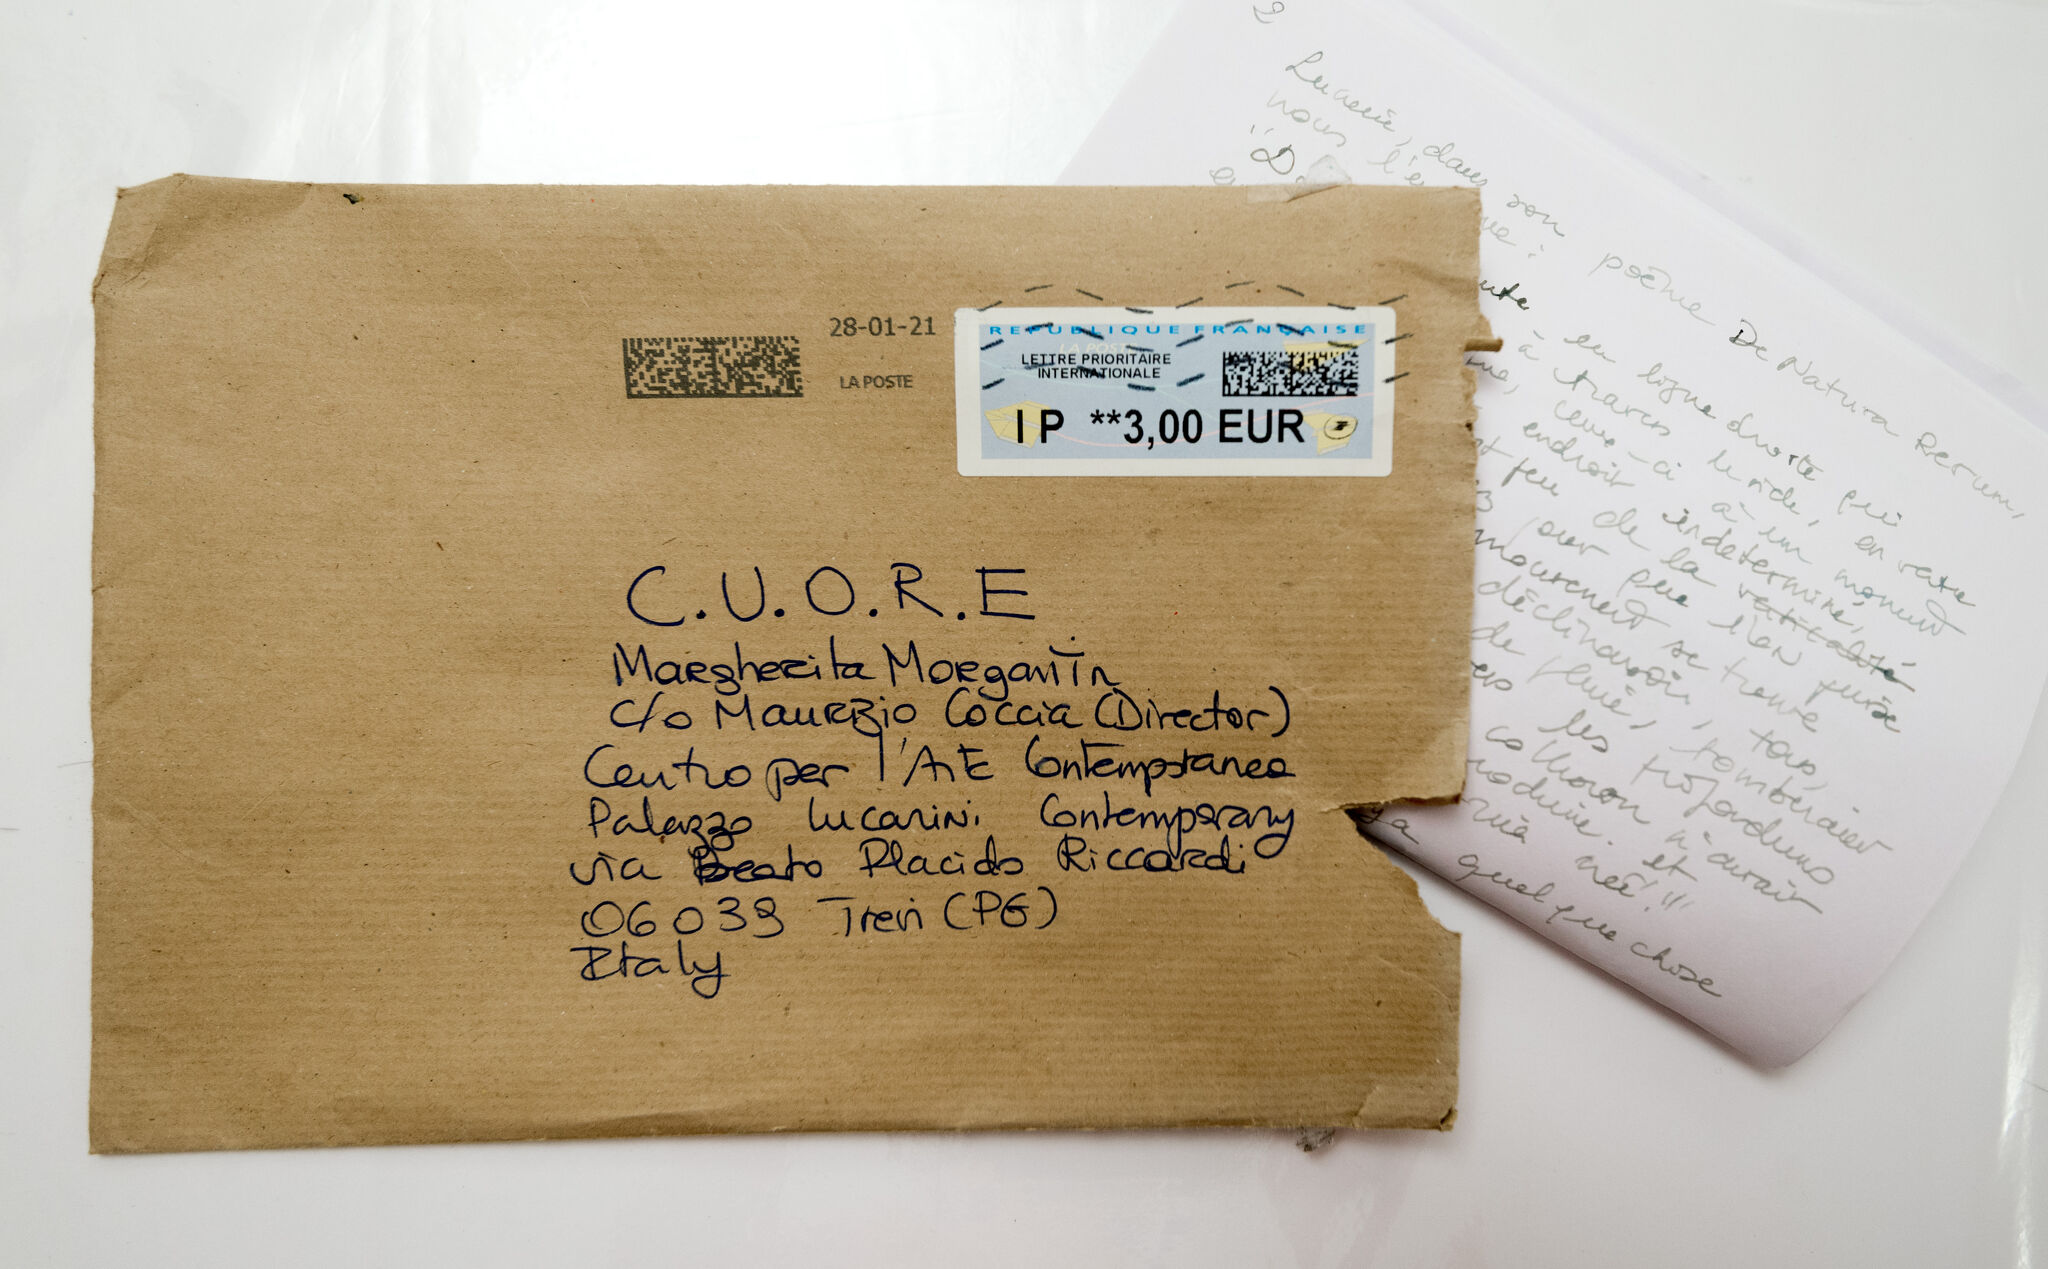 28-01-21
LA POSTE
REPUBLIQUE FRANÇAISE
LA POSTE
LETTRE PRIORITAIRE
INTERNATIONALE
IP **3,00 EUR
C.U.O.R.E
Margherita Morgantin
c/o Maurizio Coccia (Director)
Centro per l'Arte Contemporanea
Palazzo Lucarini Contemporary
via Beato Placido Riccardi
06039 Trevi (PG)
Italy
2
dans son poème De Natura Rerum,
nous
en ligne droite qui
à travers le vide, en vertu
ceux-ci à un moment
endroit indéterminé,
peu de la verticalité
pour que l'on puisse
mouvement se trouve
déclinaison, tous,
de pluie, tomberaient
les profondeurs
collision n'aurait
et
née!"
La quelque chose